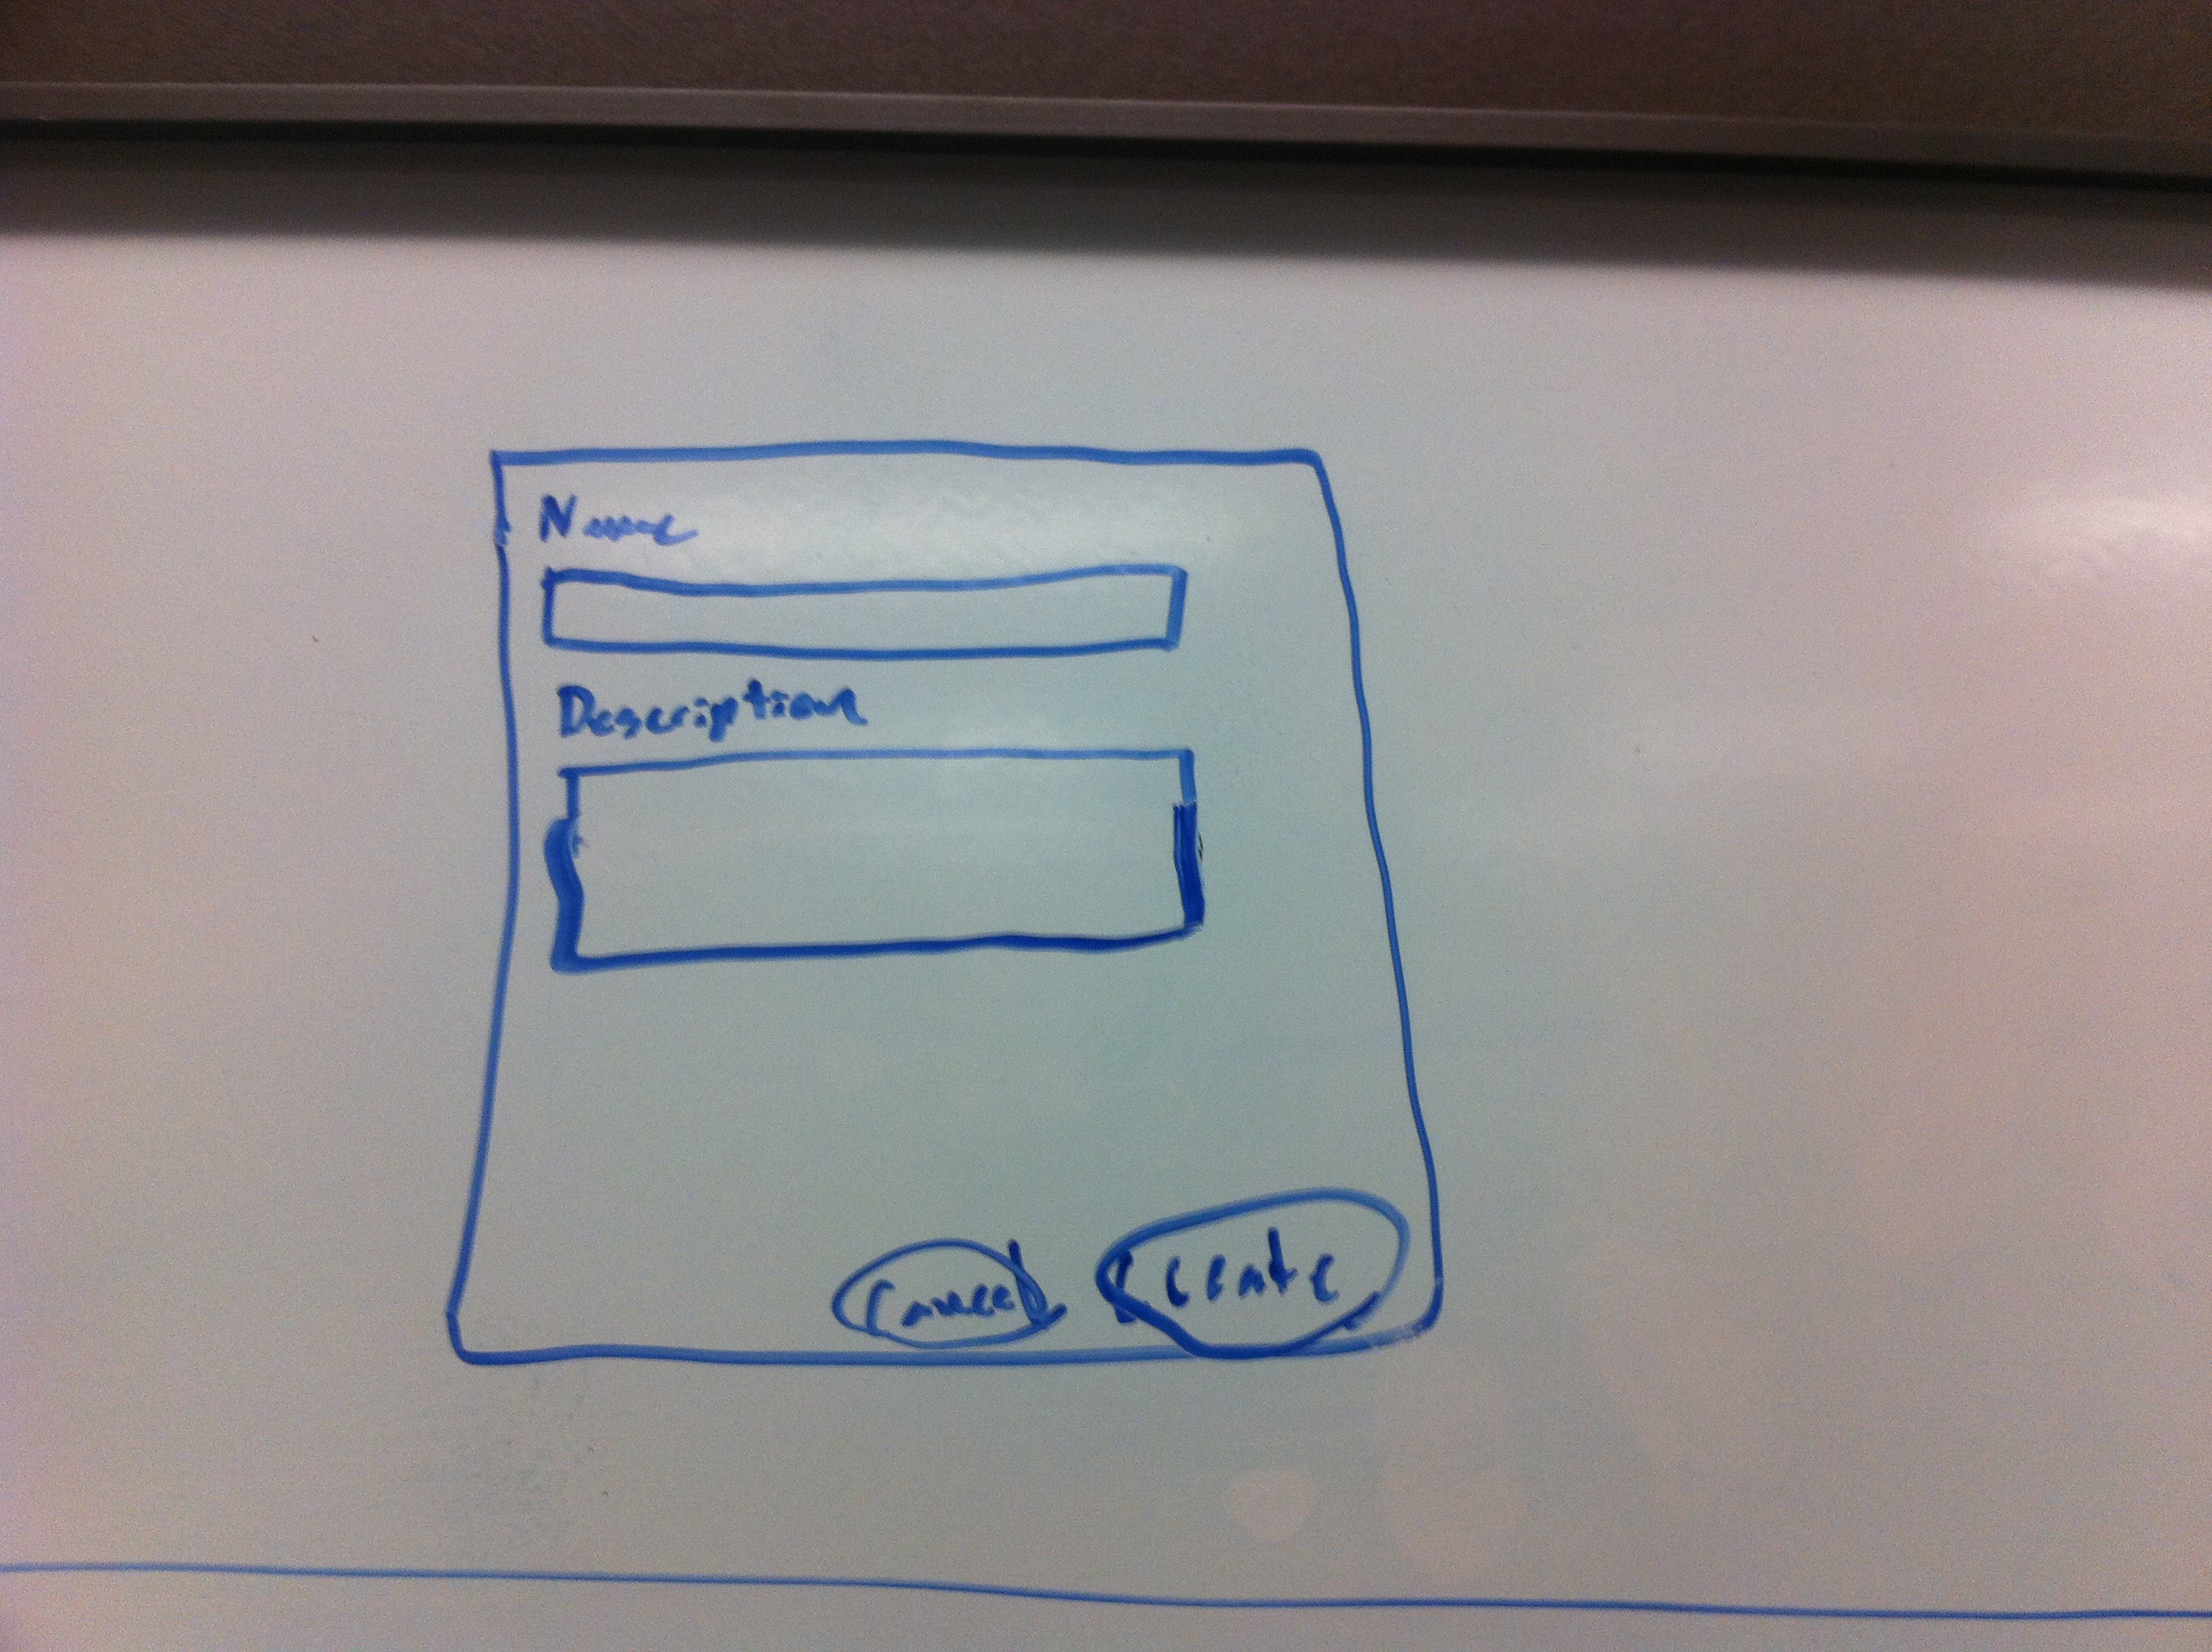 Name
Description
Cancel Create